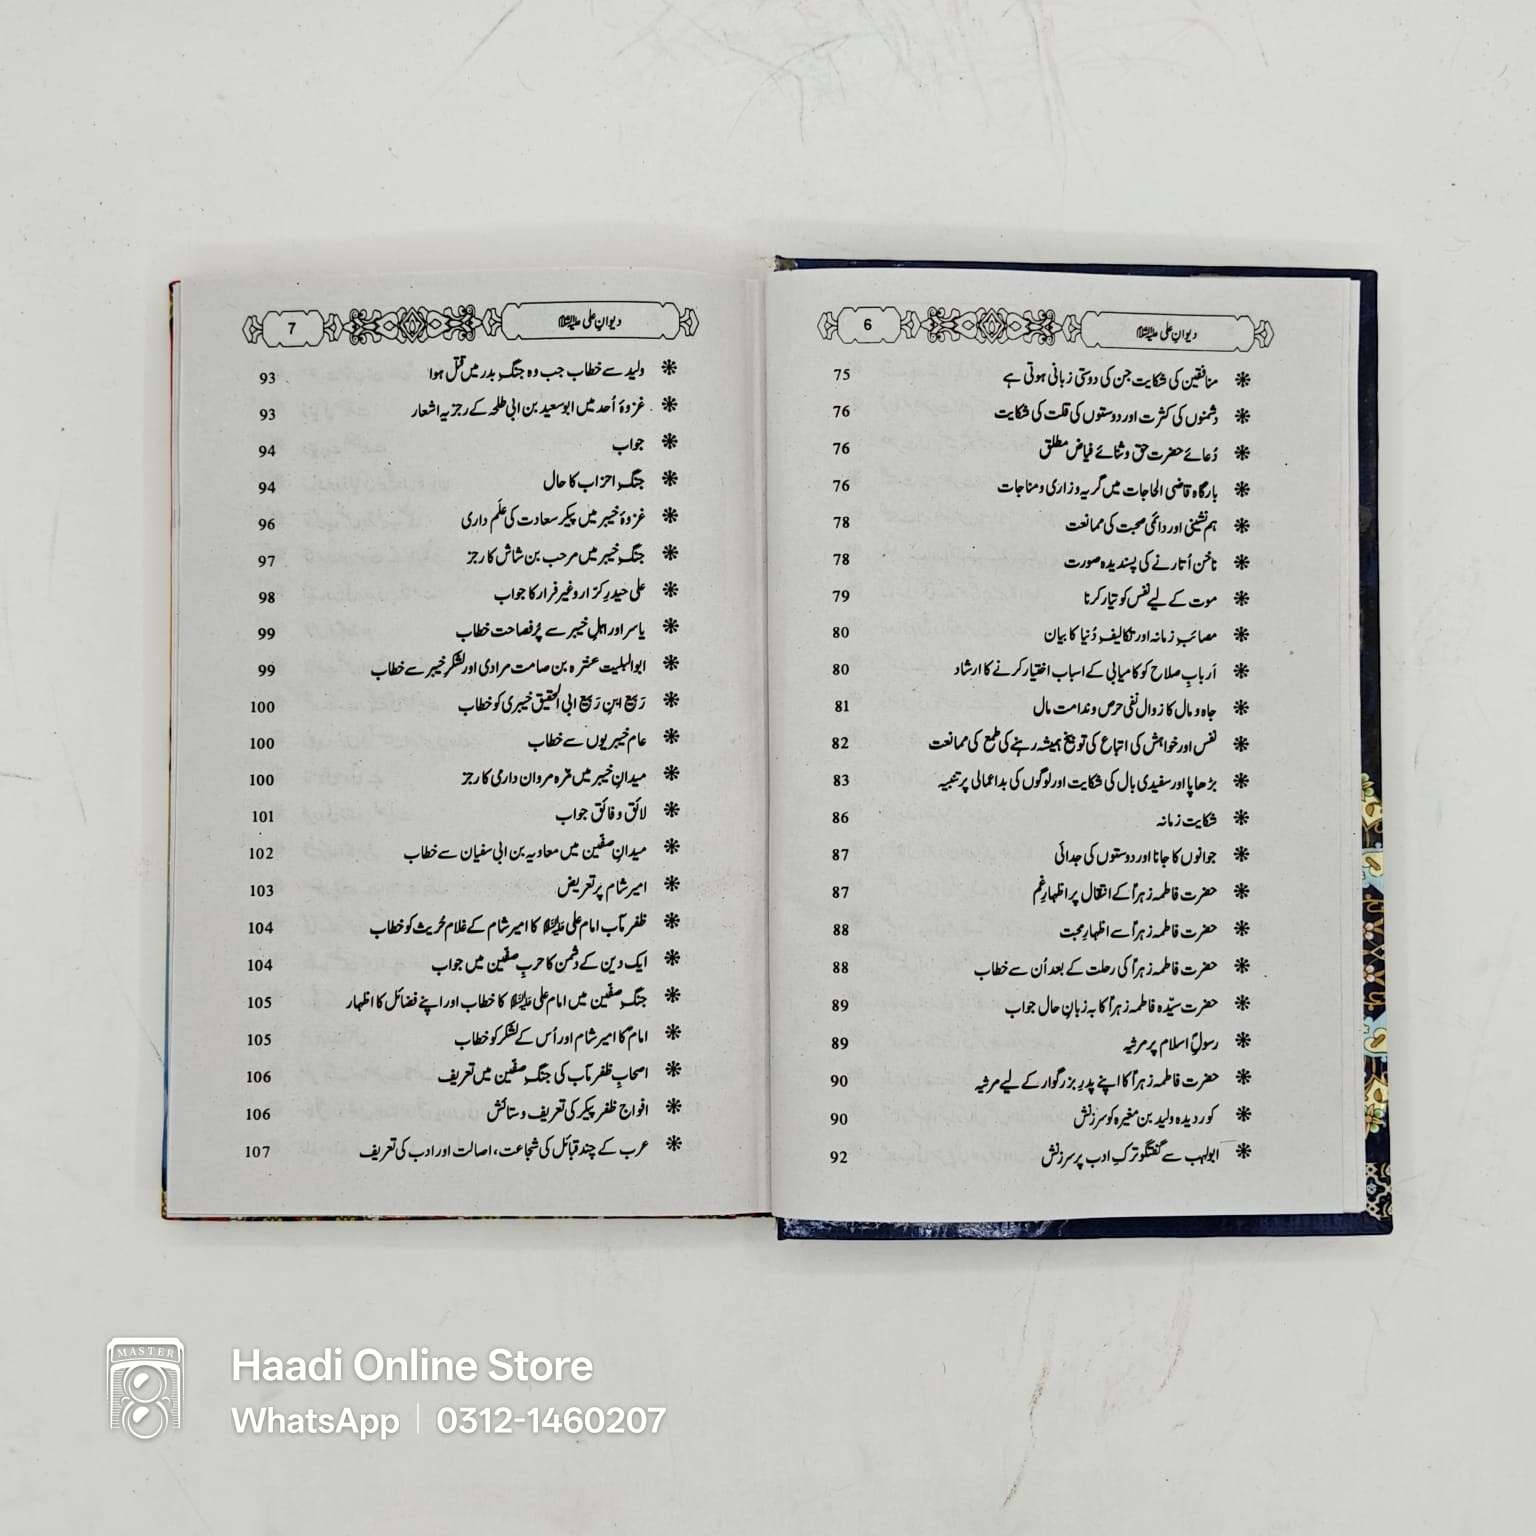 6 دیوانِ علی علیہ السلام
منافقین کی شکایت جن کی دوستی زبانی ہوتی ہے 75
دشمنوں کی کثرت اور دوستوں کی قلت کی شکایت 76
دُعائے حضرت حق و ثنائے فیاض مطلق 76
بارگاہ قاضی الحاجات میں گریہ و زاری و مناجات 76
ہم نشینی اور دائمی صحبت کی ممانعت 78
ناخن اُتارنے کی پسندیدہ صورت 78
موت کے لیے نفس کو تیار کرنا 79
مصائبِ زمانہ اور تکالیفِ دُنیا کا بیان 80
اَربابِ صلاح کو کامیابی کے اسباب اختیار کرنے کا ارشاد 80
جاہ و مال کا زوال نفی حرص و ندامت مال 81
نفس اور خواہش کی اتباع کی توبیخ ہمیشہ رہنے کی طمع کی ممانعت 82
بڑھاپا اور سفیدی بال کی شکایت اور لوگوں کی بداعمالی پر تنبیہ 83
شکایت زمانہ 86
جوانوں کا جانا اور دوستوں کی جدائی 87
حضرت فاطمہ زہراؑ کے انتقال پر اظہارِ غم 87
حضرت فاطمہ زہراؑ سے اظہارِ محبت 88
حضرت فاطمہ زہراؑ کی رحلت کے بعد اُن سے خطاب 88
حضرت سیّدہ فاطمہ زہراؑ کا بہ زبانِ حال جواب 89
رسولِؐ اسلام پر مرثیہ 89
حضرت فاطمہ زہراؑ کا اپنے پدرِ بزرگوار کے لیے مرثیہ 90
کور دیدہ ولید بن مغیرہ کو سرزنش 90
ابولہب سے گفتگو ترکِ ادب پر سرزنش 92
7 دیوانِ علی علیہ السلام
ولید سے خطاب جب وہ جنگِ بدر میں قتل ہوا 93
غزوۂ اُحد میں ابوسعید بن ابی طلحہ کے رجزیہ اشعار 93
جواب 94
جنگِ احزاب کا حال 94
غزوۂ خیبر میں پیکر سعادت کی عَلَم داری 96
جنگِ خیبر میں مرحب بن شاش کا رجز 97
علی حیدرِ کرّار و غیر فرار کا جواب 98
یاسر اور اہلِ خیبر سے پُرفصاحت خطاب 99
ابوالبلیت عنترہ بن صامت مرادی اور لشکرِ خیبر سے خطاب 99
رَبیع ابنِ رَبیع ابی الحقیق خیبری کو خطاب 100
عام خیبریوں سے خطاب 100
میدانِ خیبر میں مرّہ مروان دارمی کا رجز 100
لائق و فائق جواب 101
میدانِ صفّین میں معاویہ بن ابی سفیان سے خطاب 102
امیرِ شام پر تعریض 103
ظفر مآب امام علی علیہ السلام کا امیرِ شام کے غلام حُریث کو خطاب 104
ایک دین کے دشمن کا حربِ صفّین میں جواب 104
جنگِ صفّین میں امام علی علیہ السلام کا خطاب اور اپنے فضائل کا اظہار 105
امامؑ کا امیرِ شام اور اُس کے لشکر کو خطاب 105
اصحابِ ظفر مآب کی جنگِ صفّین میں تعریف 106
افواج ظفر پیکر کی تعریف و ستائش 106
عرب کے چند قبائل کی شجاعت، اصالت اور ادب کی تعریف 107
MASTER
Haadi Online Store
WhatsApp | 0312-1460207